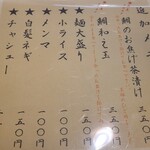 追加メニュー
★鯛のお魚げ茶漬け 三五〇円
★鯛和え玉 三五〇円
★麺大盛り 一〇〇円
★小ライス 一〇〇円
★メンマ 一〇〇円
★白髪ネギ 一五〇円
★チャーシュー 一五〇円